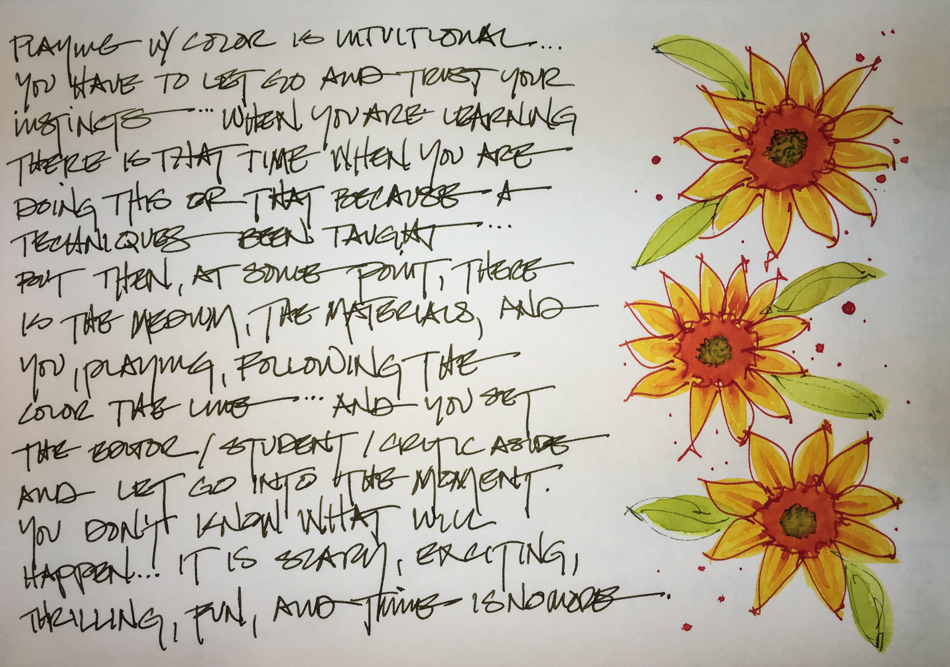 PLAYING W/ COLOR IS INTUITIONAL...
YOU HAVE TO LET GO AND TRUST YOUR
INSTINCTS ... WHEN YOU ARE LEARNING
THERE IS THAT TIME WHEN YOU ARE
DOING THIS OR THAT BECAUSE A
TECHNIQUES BEEN TAUGHT ...
BUT THEN, AT SOME POINT, THERE
IS THE MEDIUM, THE MATERIALS, AND
YOU, PLAYING, FOLLOWING THE
COLOR THE LINE ... AND YOU SET
THE EDITOR / STUDENT / CRITIC ASIDE
AND LET GO INTO THE MOMENT.
YOU DON'T KNOW WHAT WILL
HAPPEN... IT IS SCARY, EXCITING,
THRILLING, FUN, AND TIME IS NO MORE.